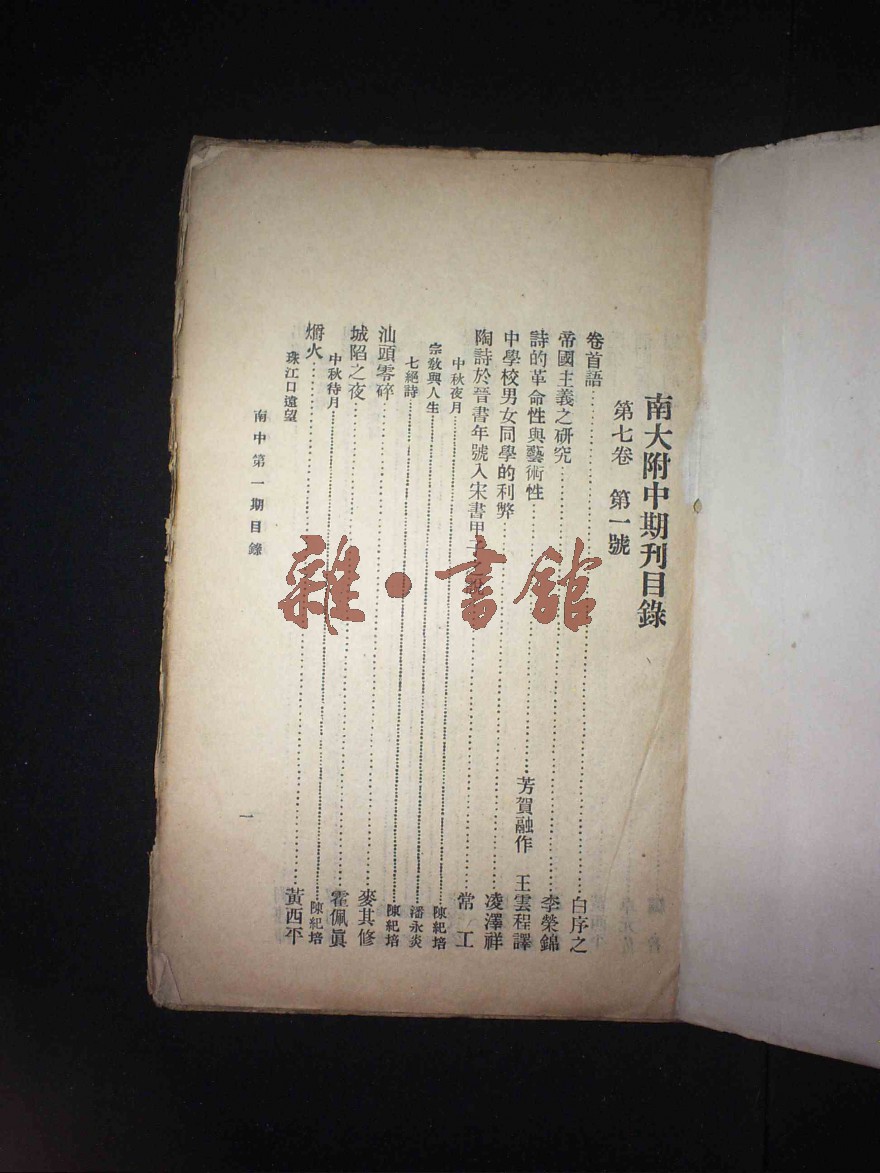 南大附中期刊目錄
第七卷　第一號
卷首語……白序之
帝國主義之研究……李榮錦
詩的革命性與藝術性……芳賀融作　王雲程譯
中學校男女同學的利弊……凌澤祥
陶詩於晉書年號入宋書甲子……常　工
中秋夜月……陳紀培
宗教與人生……潘永炎
七絕詩……陳紀培
汕頭零碎……麥其修
城陷之夜……霍佩眞
中秋待月……陳紀培
爝火……黃西平
珠江口遠望
南中第一期目錄
一
雜·書館